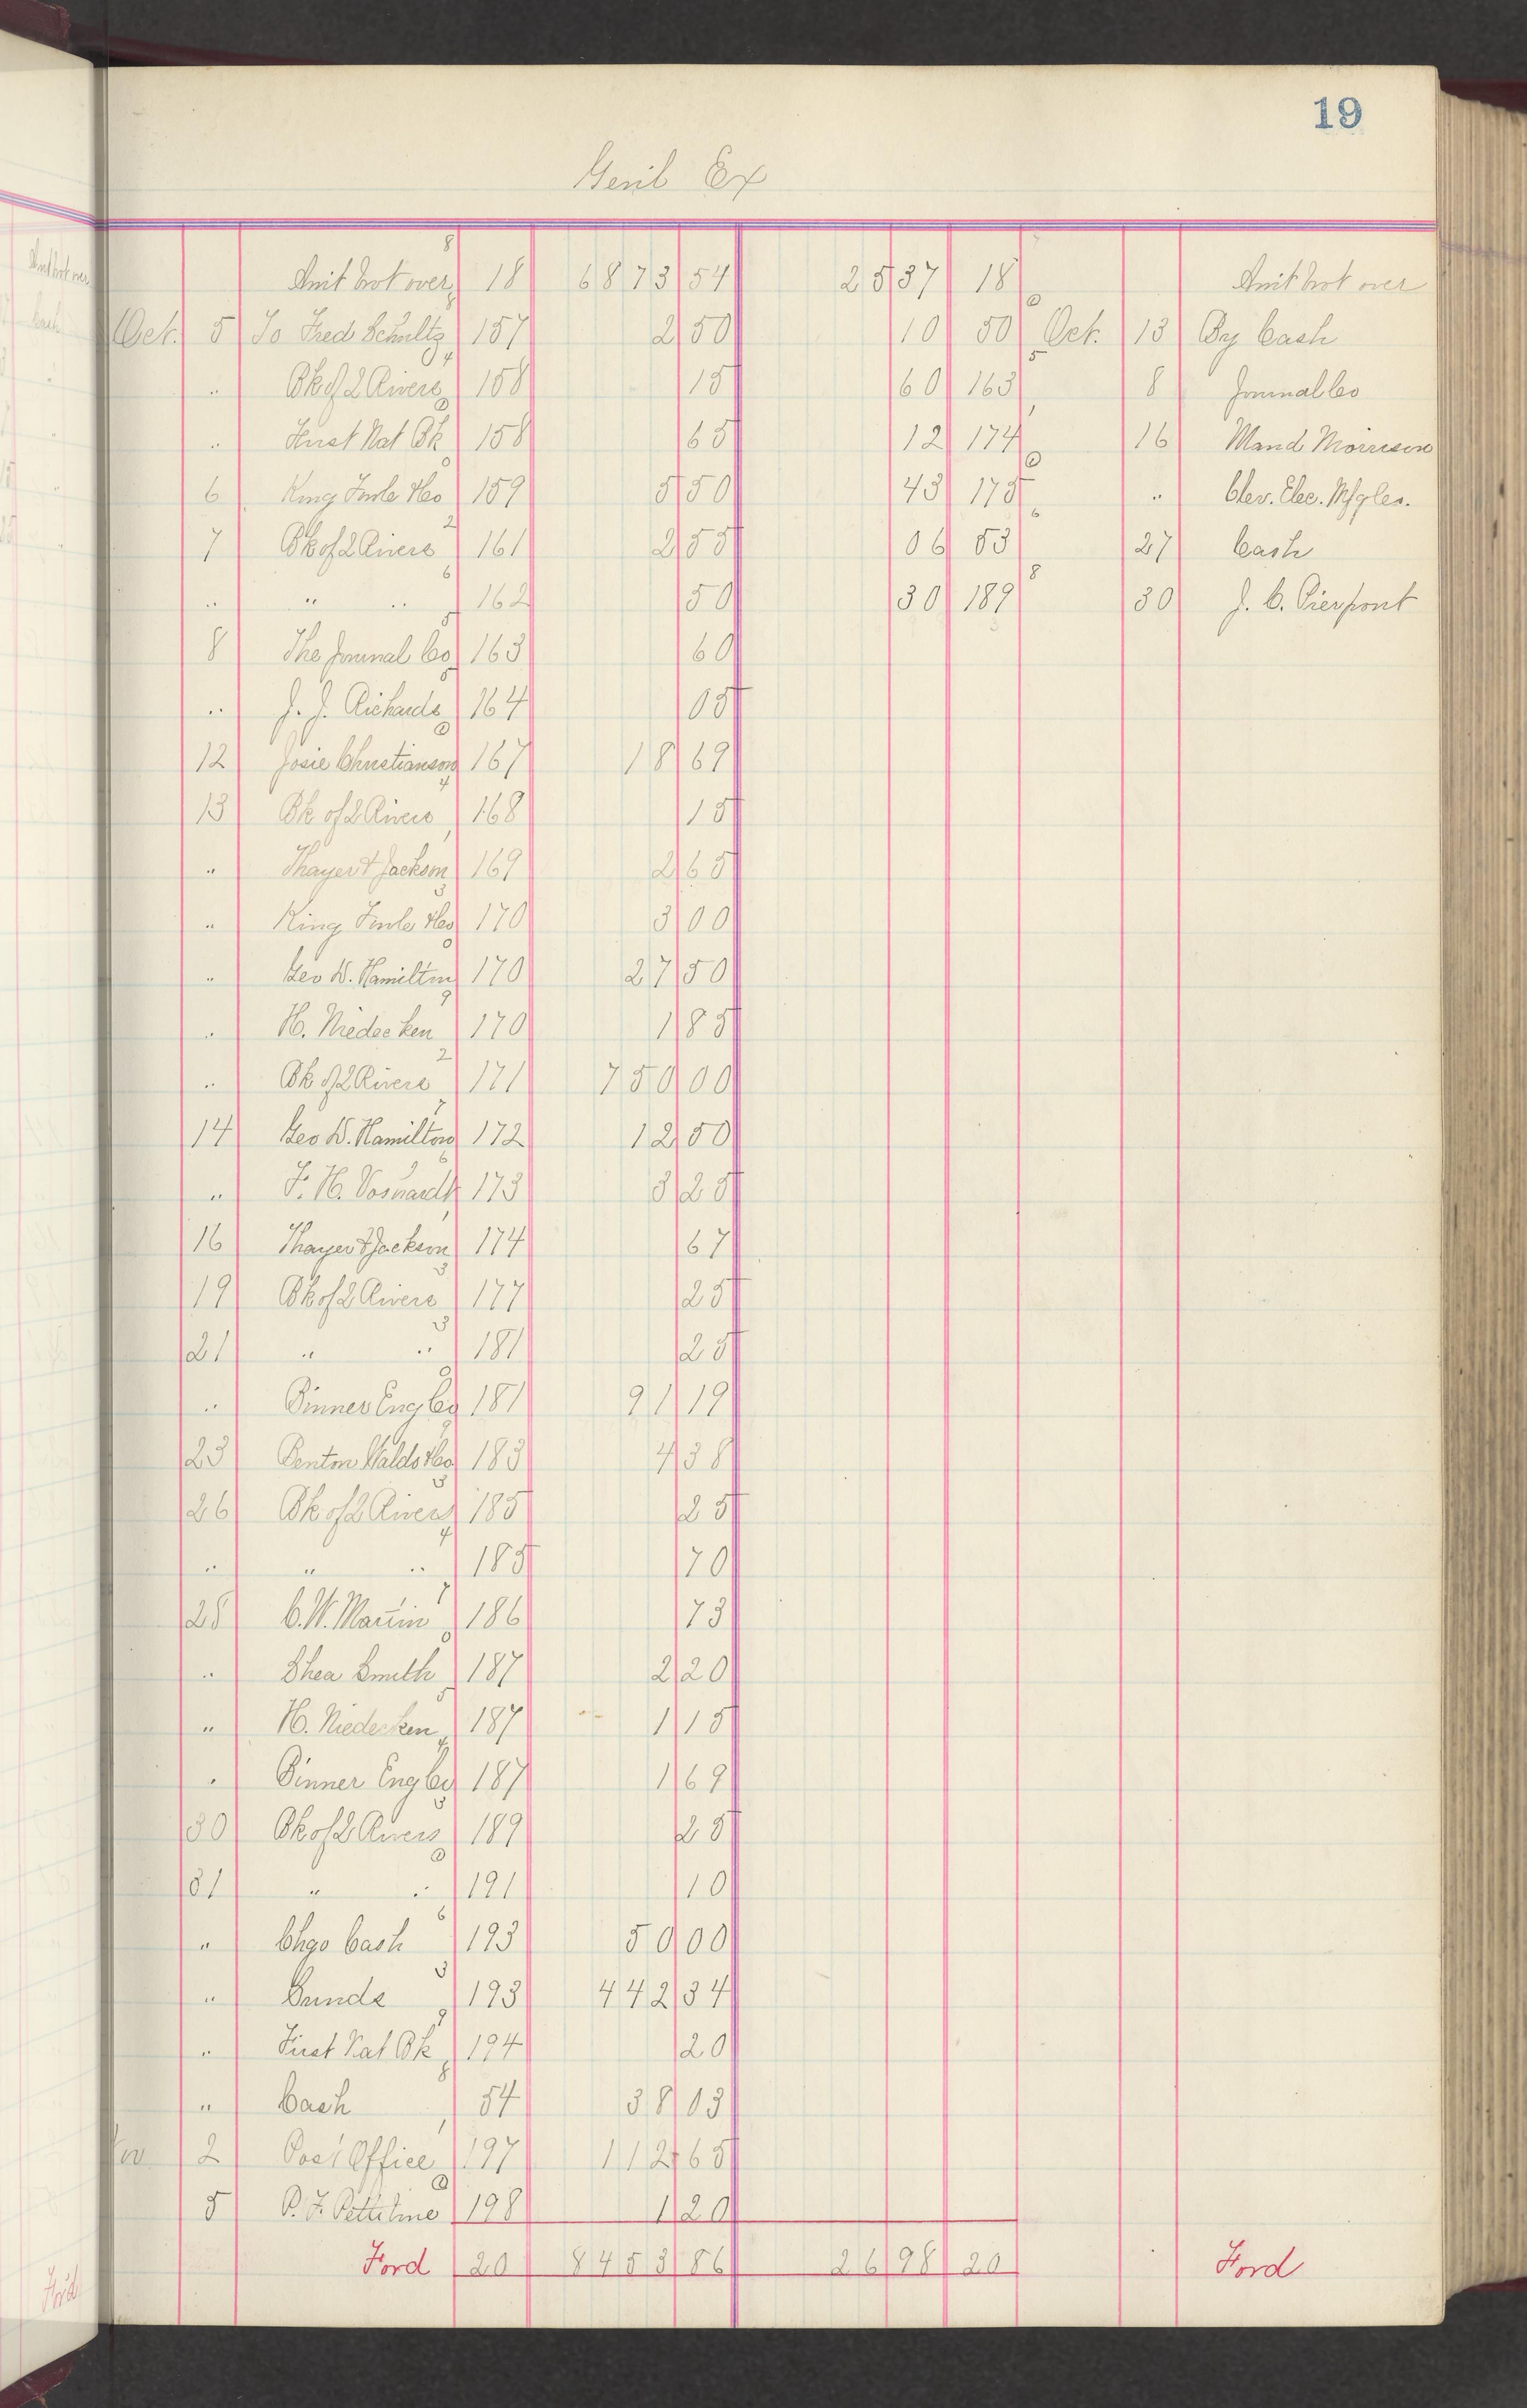 19
Genl Ex
Amt brot over 18 6873 54 25 37 18 Amt brot over
Oct. 5 To Fred Schultz 157 2 50 10 50 Oct. 13 By Cash
" Bk of 2 Rivers 158 15 60 163 8 Journal Co
" First Nat Bk 158 65 12 174 16 Maud Morrison
6 King Fowle & Co 159 5 50 45 175 " Clev. Elec. Mfg Co.
7 Bk of 2 Rivers 161 2 55 06 53 27 Cash
" " " 162 50 30 189 30 J. C. Pierpont
8 The Journal Co 163 60
" J. J. Richards 164 05
12 Josie Christianson 167 18 69
13 Bk of 2 Rivers 168 15
" Thayer & Jackson 169 2 65
" King Fowle & Co 170 3 00
" Geo D. Hamilton 170 27 50
" H. Niedecken 170 1 85
" Bk of 2 Rivers 171 750 00
14 Geo D. Hamilton 172 12 50
" F. H. 173 3 25
16 Thayer & Jackson 174 67
19 Bk of 2 Rivers 177 25
21 " " 181 25
" Binner Eng Co 181 91 19
23 Benton Waldo & Co 183 4 38
26 Bk of 2 Rivers 185 25
" " " 185 70
28 C. W. Martin 186 73
" Shea Smith 187 2 20
" H. Niedecken 187 1 15
" Binner Eng Co 187 1 69
30 Bk of 2 Rivers 189 25
31 " " 191 10
" Chgo Cash 193 50 00
" Sunds 193 442 34
" First Nat Bk 194 20
" Cash 54 38 03
Nov 2 Post Office 197 112 65
5 P. F. Pettibone 198 1 20
Ford 20 8453 86 26 98 20 Ford